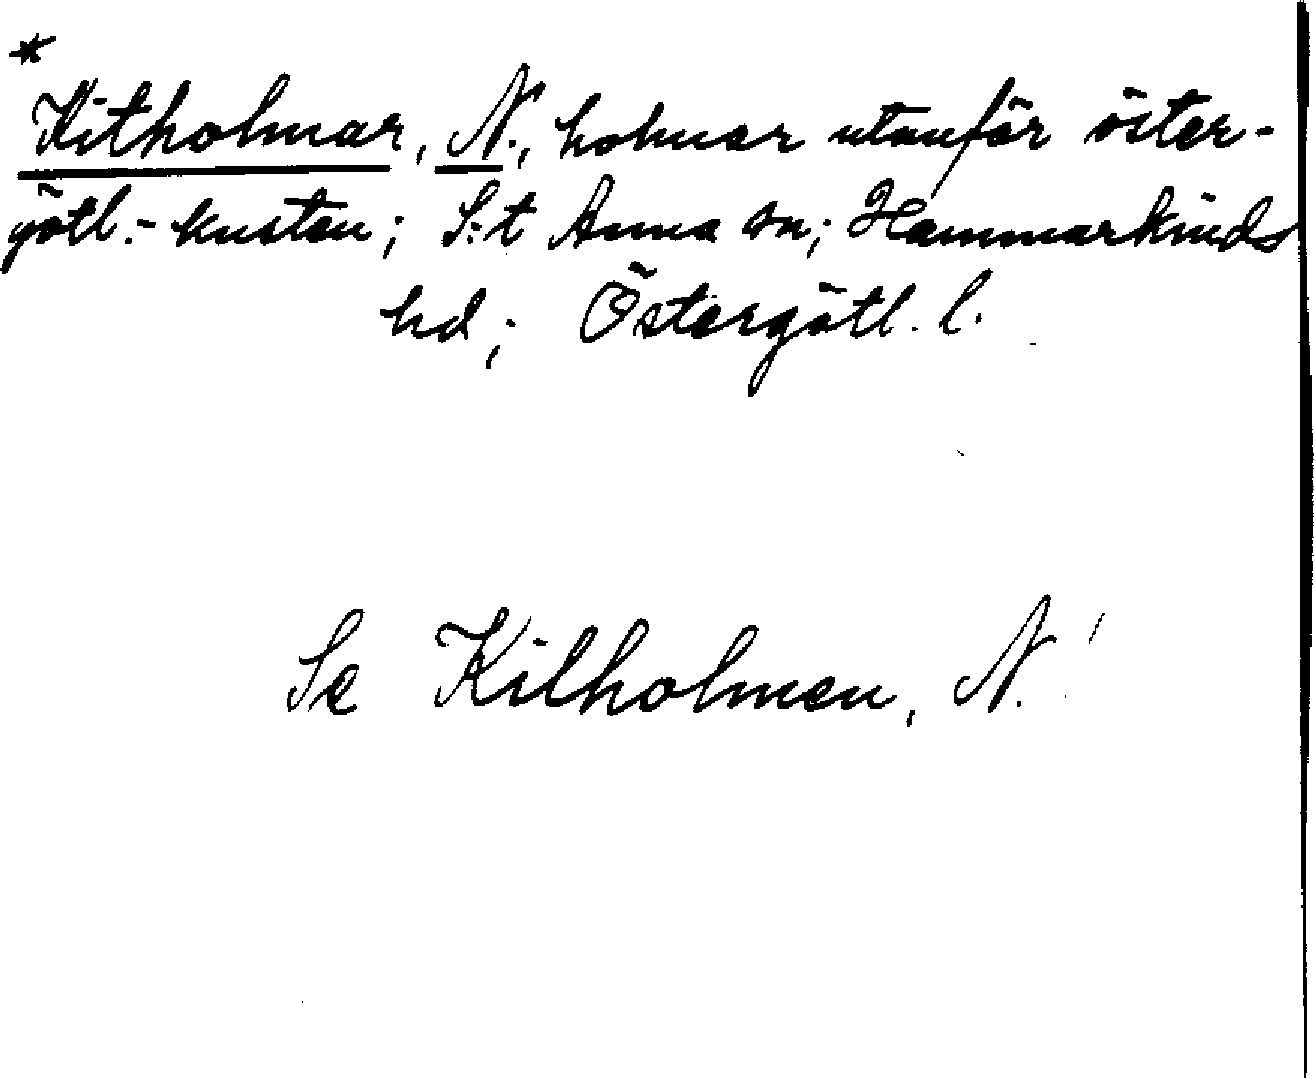 *
Kitholmar, N., holmar utanför öster-
götl.-kusten; S:t Anna sn; Hammarkinds
hd; Östergötl. l.
Se Kilholmen, N.!